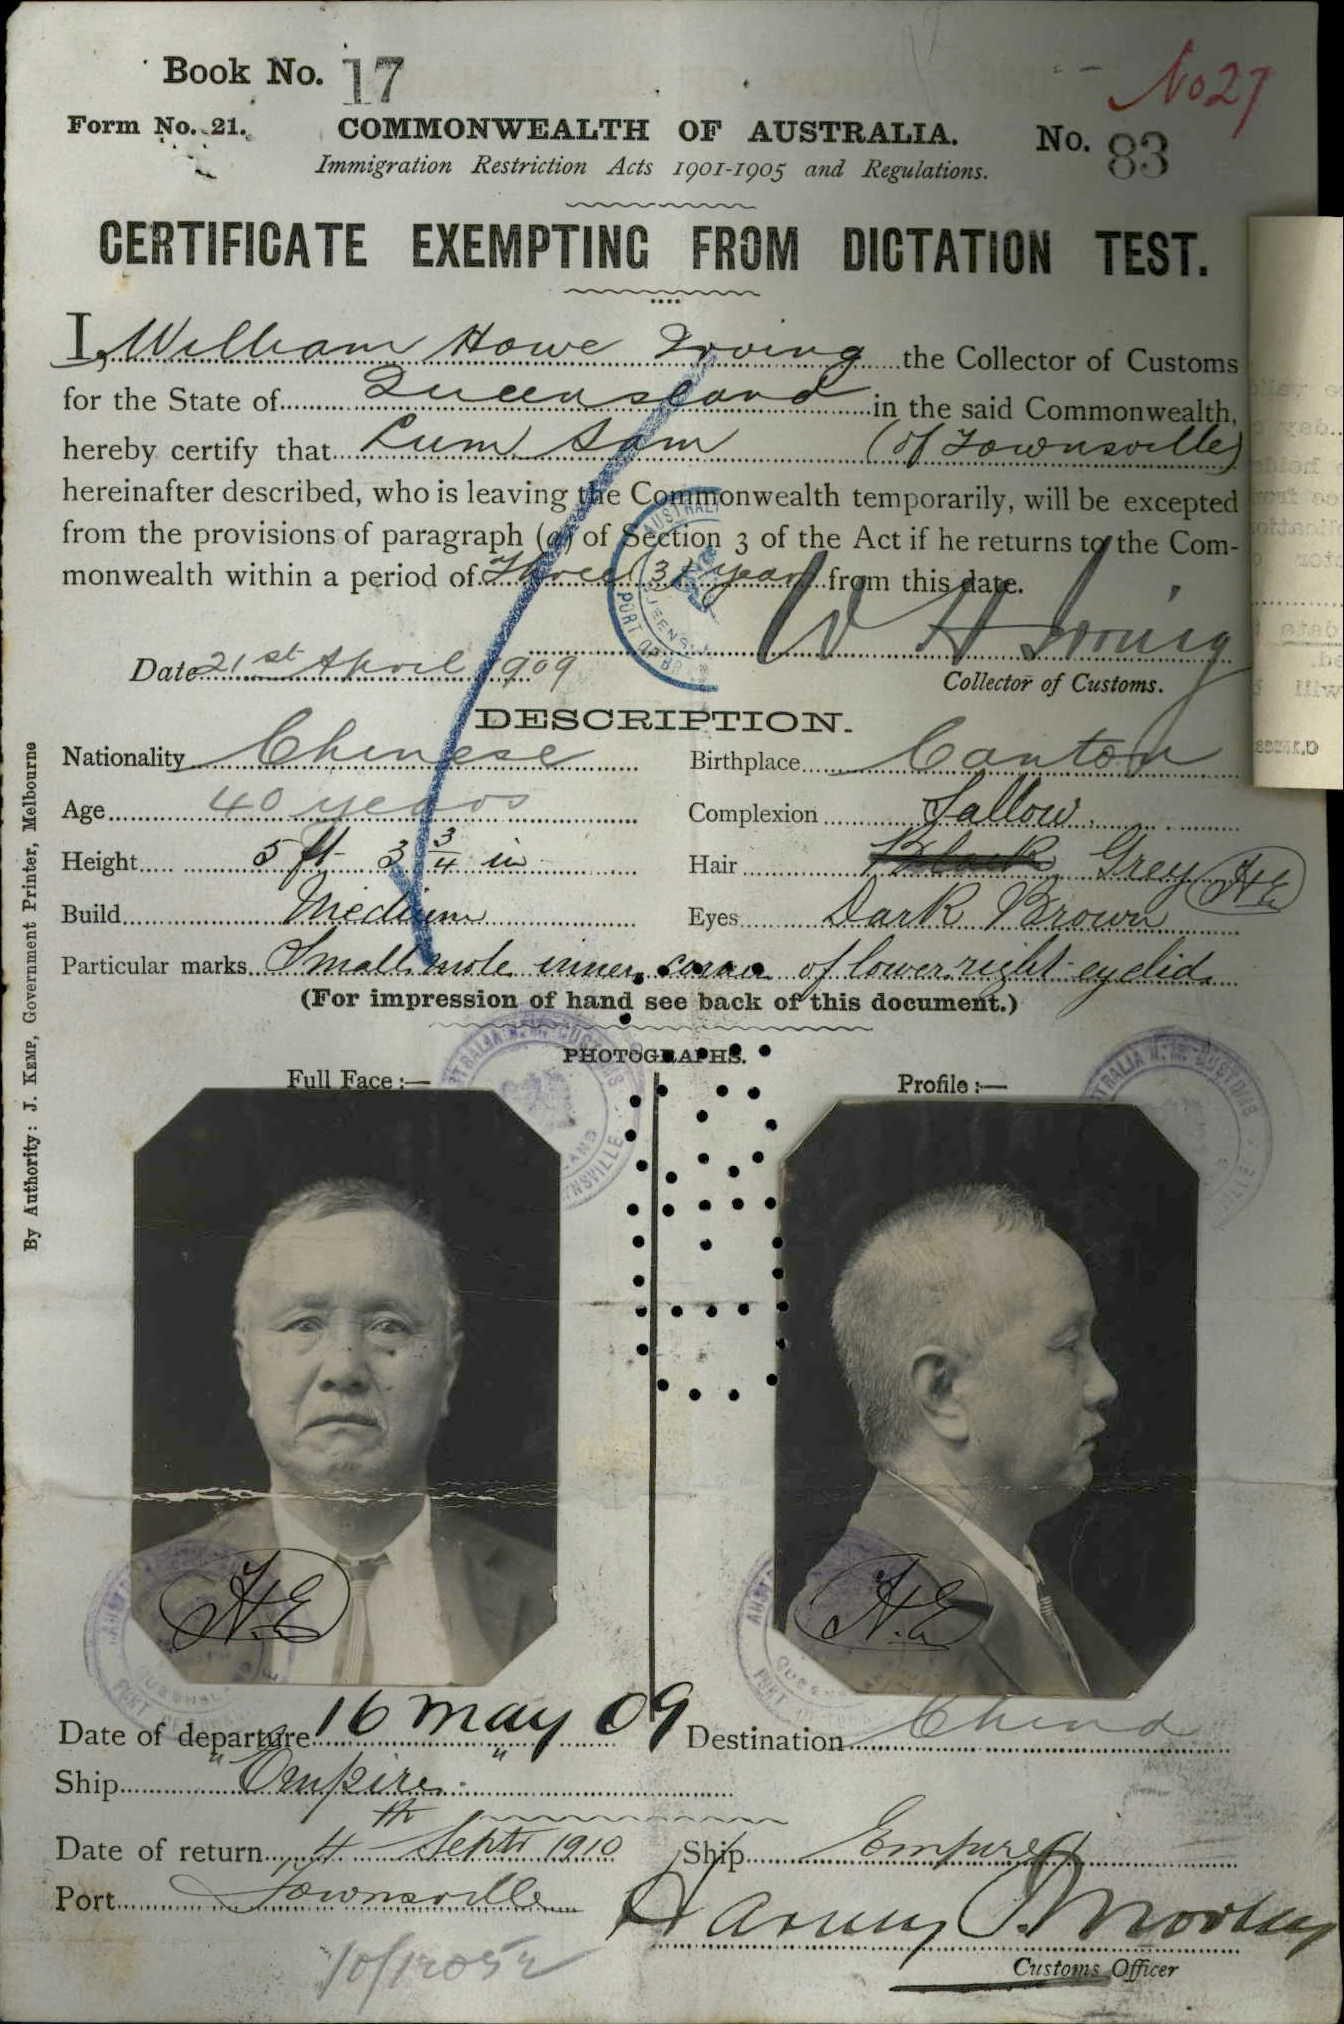 Book No. 17
No 27
Form No. 21. COMMONWEALTH OF AUSTRALIA. No. 83
Immigration Restriction Acts 1901-1905 and Regulations.
CERTIFICATE EXEMPTING FROM DICTATION TEST.
I, William Howe Irving the Collector of Customs
for the State of Queensland in the said Commonwealth,
hereby certify that Lum Sam (of Townsville)
hereinafter described, who is leaving the Commonwealth temporarily, will be excepted
from the provisions of paragraph (a) of Section 3 of the Act if he returns to the Com-
monwealth within a period of Three (3) years from this date.
W H Irving
Date 21st April 1909
Collector of Customs.
DESCRIPTION.
Nationality Chinese Birthplace Canton
Age 40 years Complexion Sallow
Height 5 ft 3 3/4 in Hair Black Grey H.E
Build Medium Eyes Dark Brown
Particular marks Small mole inner corner of lower right eyelid
(For impression of hand see back of this document.)
PHOTOGRAPHS.
Full Face :— Profile :—
H.E H.E
Date of departure 16 May 09 Destination China
Ship "Empire"
Date of return 4th Septr 1910 Ship Empire
Port Townsville
Customs Officer
10/12052
By Authority: J. KEMP, Government Printer, Melbourne